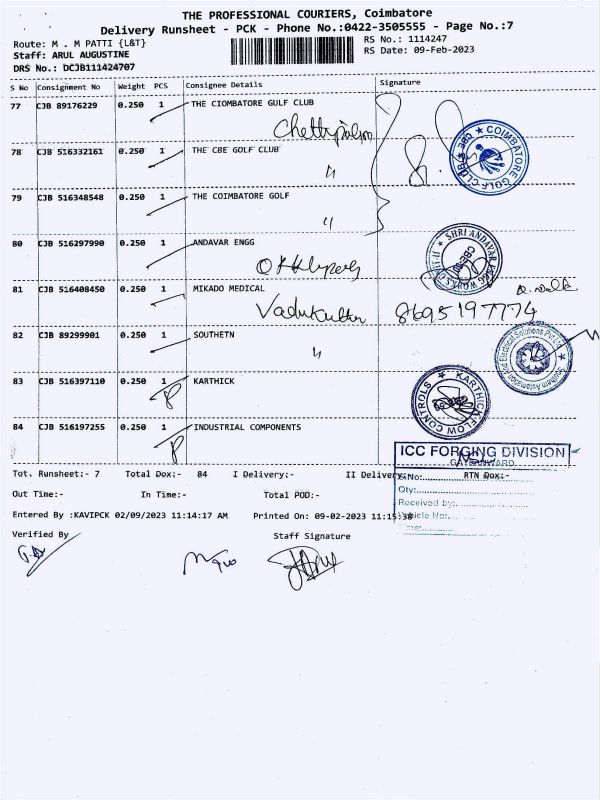 THE PROFESSIONAL COURIERS, Coimbatore
Delivery Runsheet - PCK - Phone No.:0422-3505555 - Page No.:7
Route: M . M PATTI {L&T}
RS No.: 1114247
Staff: ARUL AUGUSTINE
RS Date: 09-Feb-2023
DRS No.: DCJB111424707
S No Consignment No Weight PCS Consignee Details Signature
77 CJB 89176229 0.250 1 THE CIOMBATORE GULF CLUB
78 CJB 516332161 0.250 1 THE CBE GOLF CLUB
COIMBATORE GOLF CLUB ★ CBE ★
79 CJB 516348548 0.250 1 THE COIMBATORE GOLF
80 CJB 516297990 0.250 1 ANDAVAR ENGG
SHRI ANDAVAR ENGG WORKS
81 CJB 516408450 0.250 1 MIKADO MEDICAL
8695197774
82 CJB 89299901 0.250 1 SOUTHETN
Southern Automation and Electrical Solutions Pvt Ltd
83 CJB 516397110 0.250 1 KARTHICK
KARTHICK FLOW CONTROLS ★
84 CJB 516197255 0.250 1 INDUSTRIAL COMPONENTS
ICC FORGING DIVISION
Tot. Runsheet:- 7 Total Dox:- 84 I Delivery:- II Delivery:- RTN Dox:-
S.No:
Qty:
Out Time:- In Time:- Total POD:-
Received by:
Entered By :KAVIPCK 02/09/2023 11:14:17 AM Printed On: 09-02-2023 11:15:38
Vehicle No:
Verified By Staff Signature